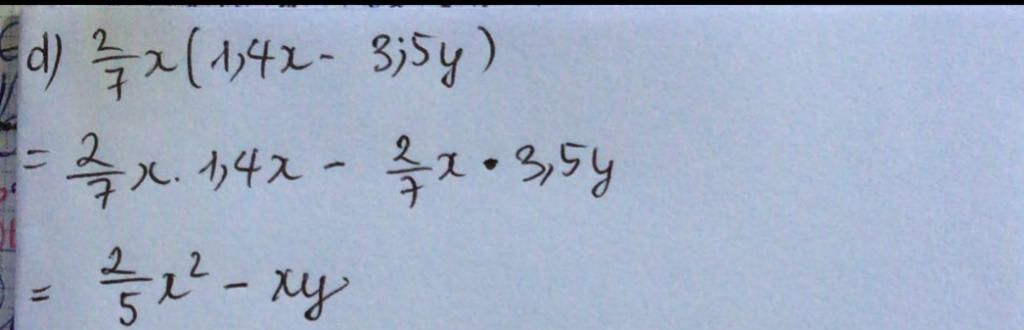 d) 2/7 x(1,4x - 3,5y)
= 2/7 x. 1,4x - 2/7 x • 3,5y
= 2/5 x² - xy